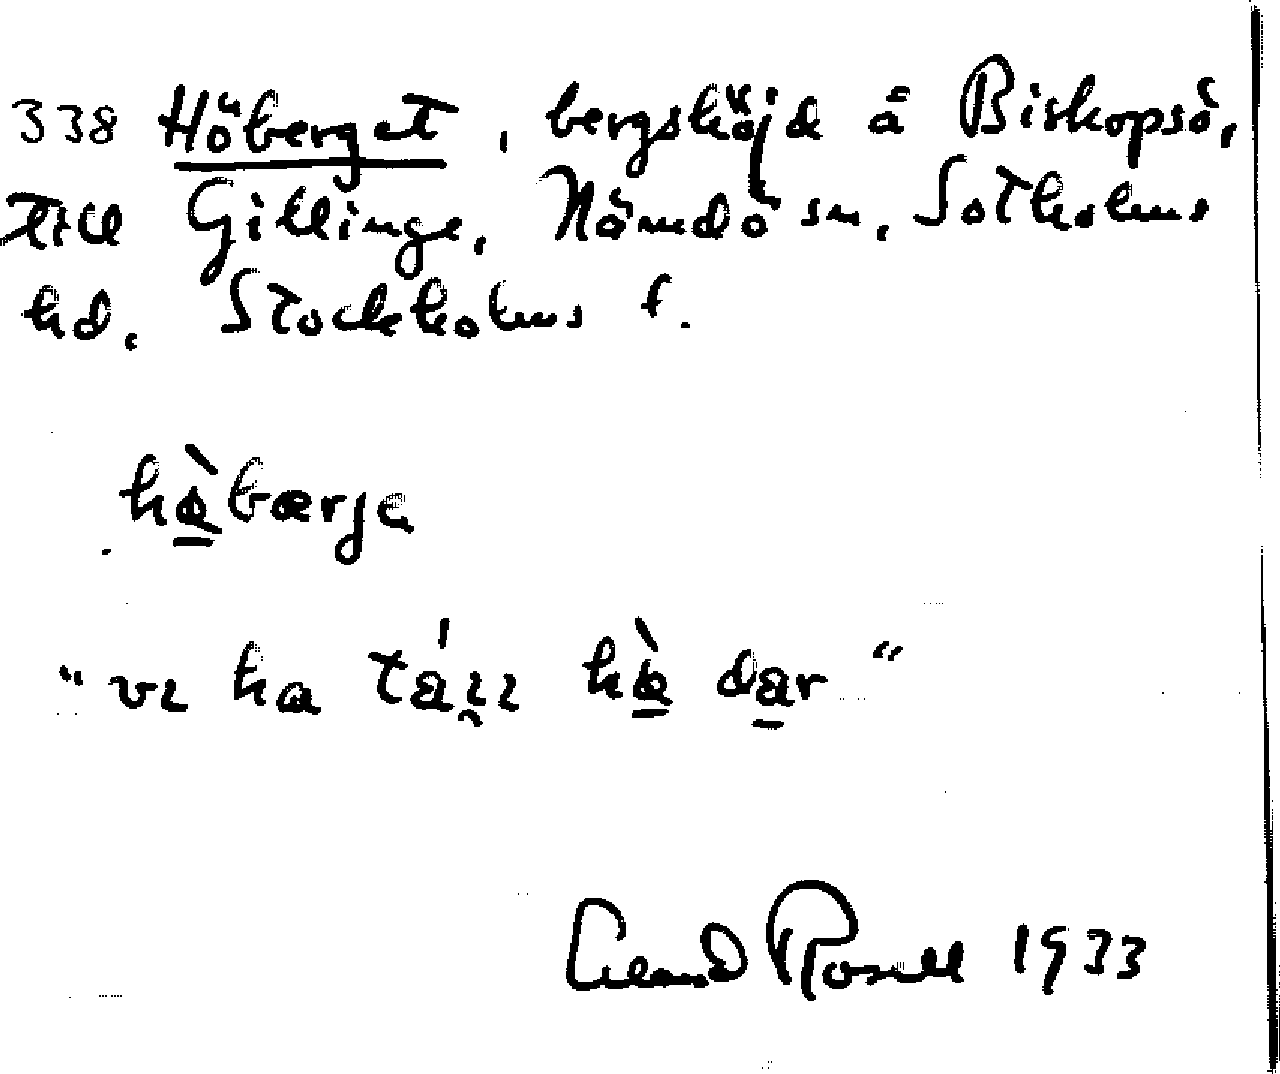 338 Höberget, bergshöjd å Biskopsö,
till Gillinge, Nämdö sn, Sotholms
hd, Stockholms f.
hø̀bærja
"vɩ ha táɩ̯ɩ hø̀ dar"
Rosell 1933